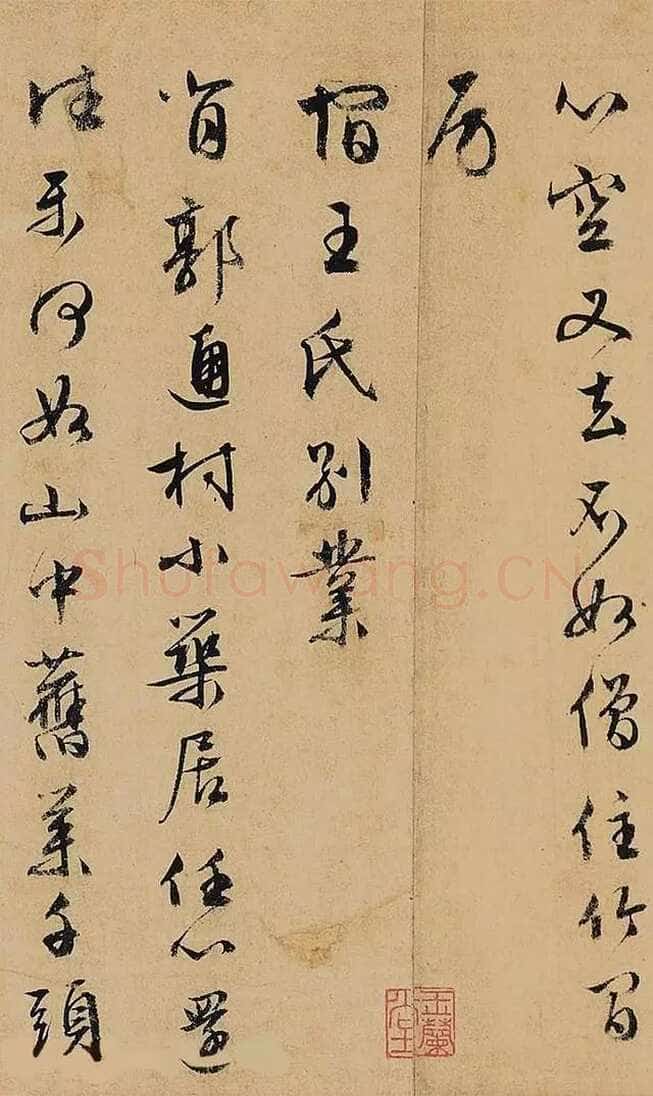 心空又去不如僧住竹間
房
王氏別業
背郭通村小築居任心還
往樂何如山中舊業千頭
玉蘭堂
Shufawang.CN